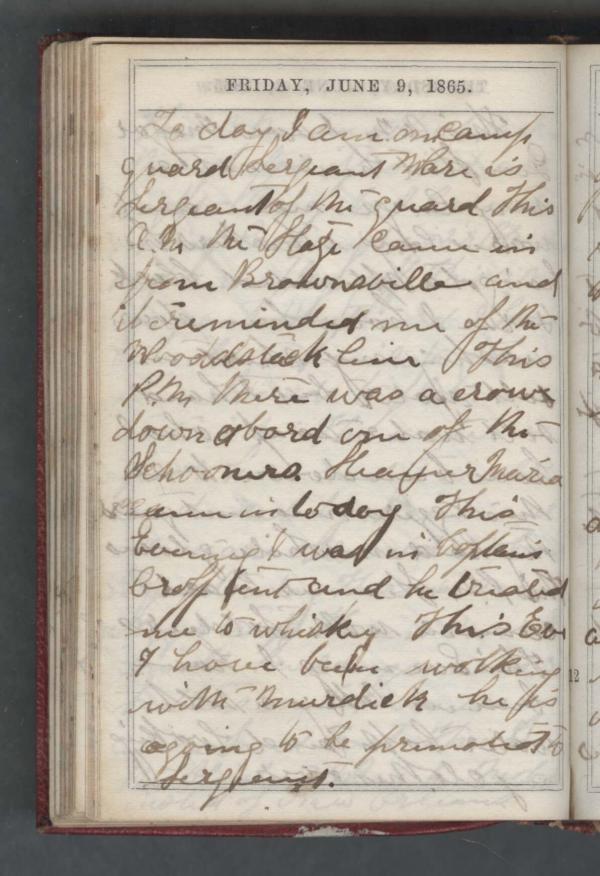 FRIDAY, JUNE 9, 1865.
To day I am on camp
guard Sergeant Ware is
Sergeant of the guard This
A.M. the Stage Came in
from Brownsville and
it reminded me of the
Woodstock line This
P.M. there was a crowd
down abord one of the
Schooners. Steamer Maria
came in to day This
Evening I was in Captain
tent and he treated
me to whisky This Eve
I have been walking
with Murdick he is
agoing to be promoted to
Sergeant.
12